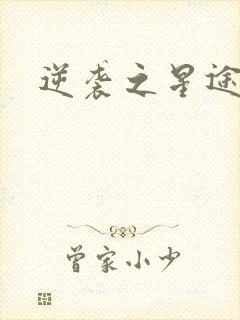 逆袭之星途
曾家小少